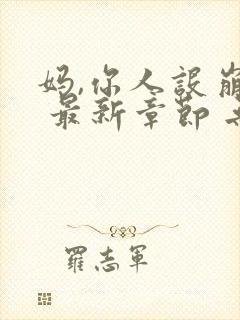 妈,你人設崩
最新章節
羅志軍